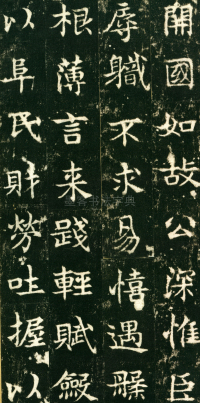 開國如故公深惟臣
辱職不求易憘遇槃
根薄言来踐輕賦斂
以阜民財勞吐握以